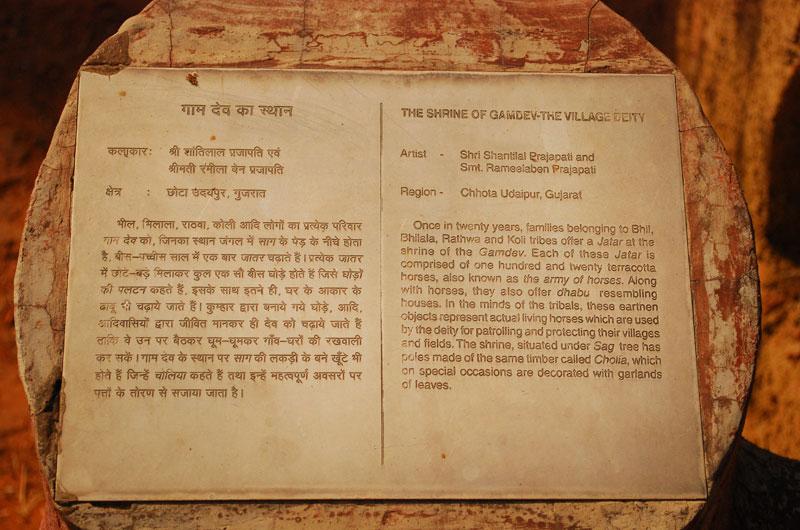 गाम देव का स्थान
कलाकार: श्री शांतिलाल प्रजापति एवं
श्रीमती रमीला बेन प्रजापति
क्षेत्र : छोटा उदयपुर, गुजरात
भील, मिलाला, राठवा, कोली आदि लोगों का प्रत्येक परिवार
गाम देव को, जिनका स्थान जंगल में साग के पेड़ के नीचे होता
है, बीस-पच्चीस साल में एक बार जातर चढ़ाते हैं। प्रत्येक जातर
में छोटे-बड़े मिलाकर कुल एक सौ बीस घोड़े होते हैं जिसे घोड़ों
की पलटन कहते हैं, इसके साथ इतने ही, घर के आकार के
ढाबू भी चढ़ाये जाते हैं। कुम्हार द्वारा बनाये गये घोड़े, आदि,
आदिवासियों द्वारा जीवित मानकर ही देव को चढ़ाये जाते हैं
ताकि वे उन पर बैठकर घूम-घूमकर गाँव-घरों की रखवाली
कर सकें। गाम देव के स्थान पर साग की लकड़ी के बने खूँटे भी
होते हैं जिन्हें चोलिया कहते हैं तथा इन्हें महत्वपूर्ण अवसरों पर
पत्तों के तोरण से सजाया जाता है।
THE SHRINE OF GAMDEV-THE VILLAGE DEITY
Artist - Shri Shantilal Prajapati and
Smt. Rameelaben Prajapati
Region - Chhota Udaipur, Gujarat
Once in twenty years, families belonging to Bhil,
Bhilala, Rathwa and Koli tribes offer a Jatar at the
shrine of the Gamdev. Each of these Jatar is
comprised of one hundred and twenty terracotta
horses, also known as the army of horses. Along
with horses, they also offer dhabu resembling
houses. In the minds of the tribals, these earthen
objects represent actual living horses which are used
by the deity for patrolling and protecting their villages
and fields. The shrine, situated under Sag tree has
poles made of the same timber called Cholia, which
on special occasions are decorated with garlands
of leaves.